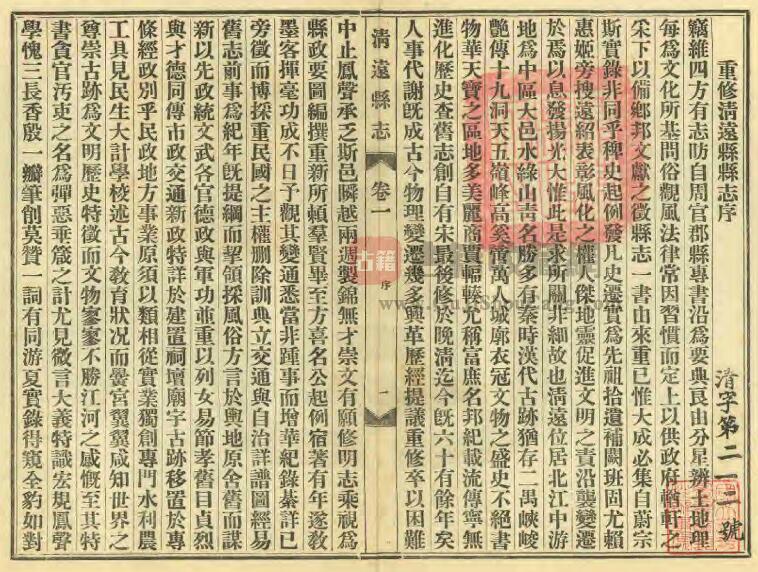 重修清遠縣縣志序
竊維四方有志昉自周官郡縣專書沿爲要典良由分星辨土地理
每爲文化所基問俗觀風法律常因習慣而定上以供政府輶軒之
采下以備鄉邦文獻之徵縣志一書由來重已惟大成必集自蔚宗
斯實錄非同乎稗史起例發凡史遷實爲先祖拾遺補闕班固尤賴
惠姬旁搜遠紹表彰風化之權人傑地靈促進文明之責沿襲變遷
於焉以息發揚光大惟此是求所關非細故也清遠位居北江中游
地爲中區大邑水綠山青名勝多有秦時漢代古跡猶存二禺峽峻
艷傳十九洞天五嶺峰高奚啻萬人城廓衣冠文物之盛史不絕書
物華天寶之區地多美麗商賈輻輳允稱富庶名邦紀載流傳寧無
進化歷史查舊志創自有宋最後修於晚清迄今旣六十有餘年矣
人事代謝旣成古今物理變遷幾多興革歷經提議重修卒以困難
清遠縣志
卷一
序
一
中止鳳聲承乏斯邑瞬越兩週製錦無才崇文有願修明志乘視爲
縣政要圖編撰重新所頼羣賢畢至方喜名公起例宿著有年遂敎
墨客揮毫功成不日予觀其變通悉當非踵事而增華紀錄綦詳已
旁徵而博採重民國之主權刪除訓典立交通與自治詳譜圖經易
舊志前事爲紀年旣提綱而挈領採風俗方言於輿地原舍舊而謀
新以先政統文武各官德政與軍功並重以列女易節孝舊目貞烈
與才德同傳市政交通新政特詳於建置祠壇廟宇古跡移置於專
條經政別乎民政地方事業原須以類相從實業獨創專門水利農
工具見民生大計學校述古今敎育狀况而黌宮翼翼咸知世界之
尊崇古跡爲文明歷史特徵而文物寥寥不勝江河之感慨至其特
書貪官汚吏之名爲彈惡垂箴之計尤見微言大義特識宏規鳳聲
學愧三長香殷一瓣筆創莫贊一詞有同游夏實錄得窺全豹如對
清字第二一二號
古籍